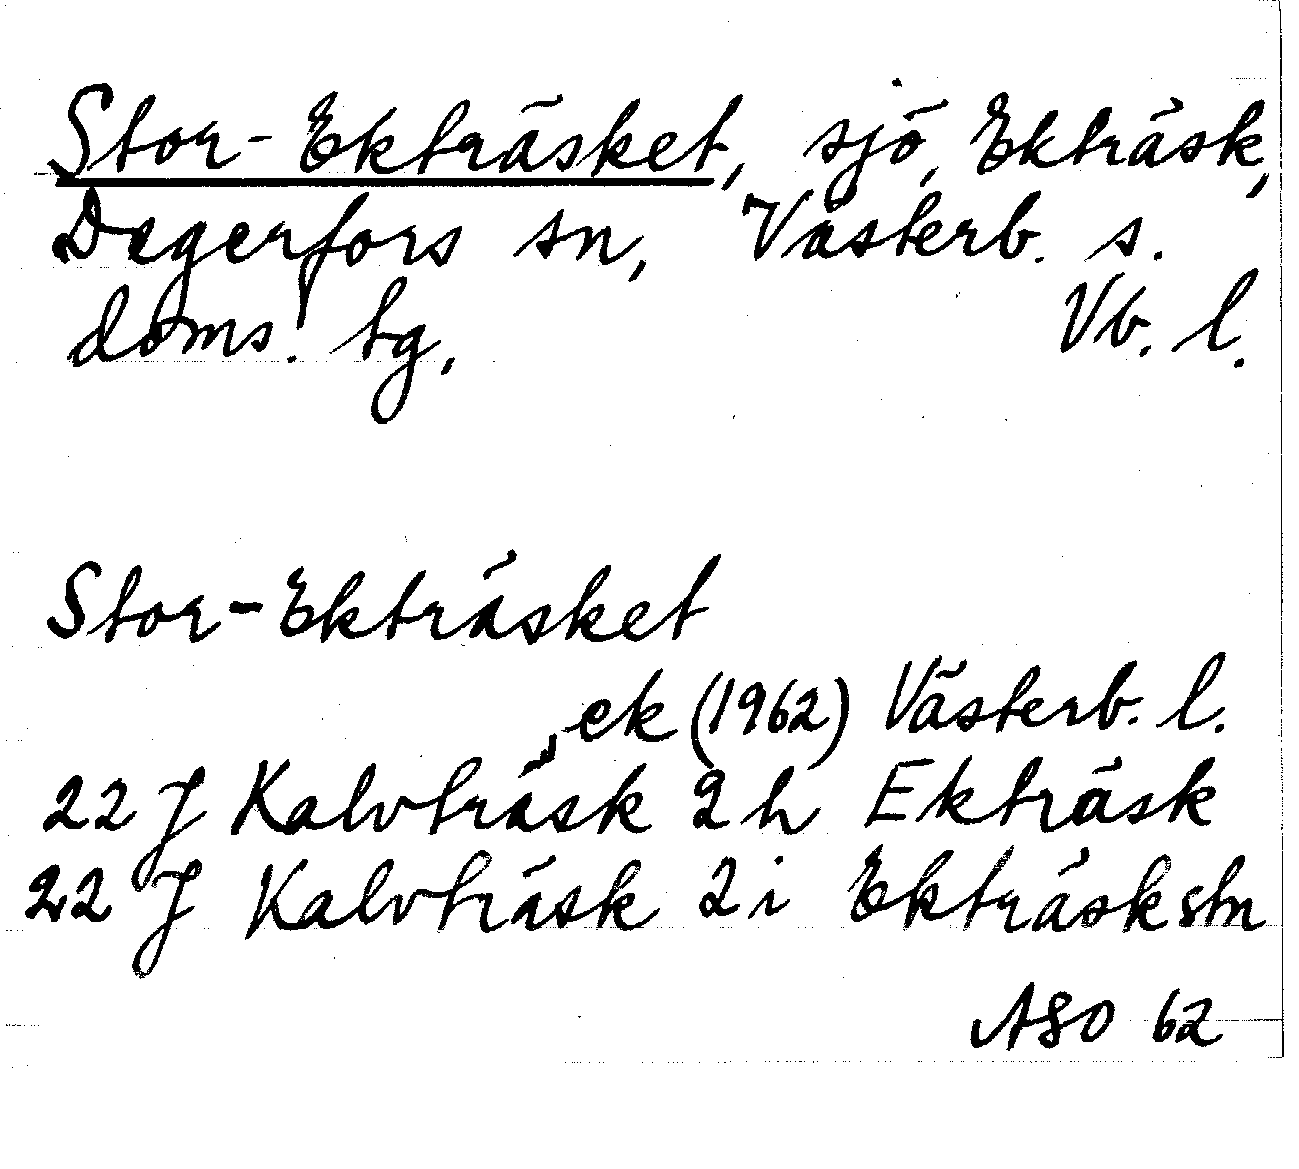 Stor-Ekträsket, sjö, Ekträsk,
Degerfors sn, Västerb. s.
doms. tg, Vb. l.
Stor-Ekträsket
ek (1962) Västerb. l.
22 J Kalvträsk 2 h Ekträsk
22 J Kalvträsk 2 i Ekträsk stn
ASO 62